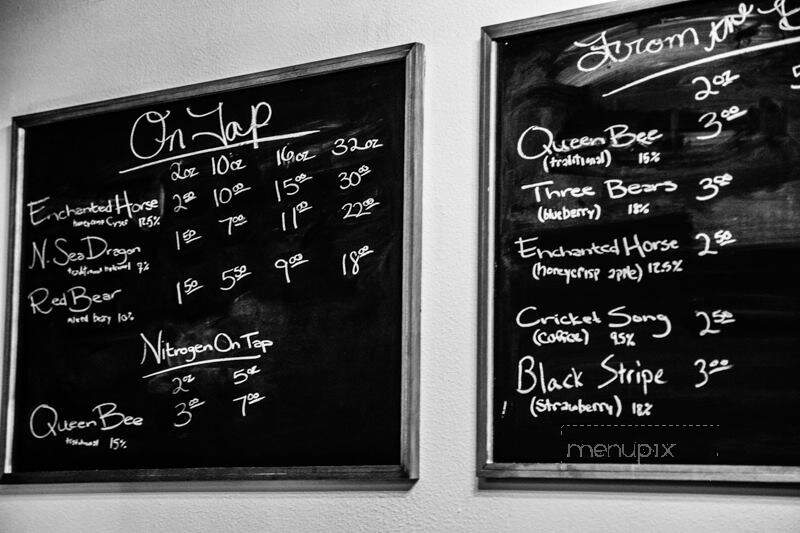 On Tap
2oz 10oz 16oz 32oz
Enchanted Horse 2.50 10.00 15.00 30.00
12.5%
N. Sea Dragon 1.50 7.00 11.00 22.00
7%
Red Bear 1.50 5.50 9.00 18.00
mixed berry 10%
Nitrogen On Tap
2oz 5oz
Queen Bee 3.00 7.00
traditional 15%
From the
2oz 5
Queen Bee 3.00
(traditional) 15%
Three Bears 3.00
(blueberry) 18%
Enchanted Horse 2.50
(honeycrisp apple) 12.5%
Cricket Song 2.50
(coffee) 9.5%
Black Stripe 3.00
(strawberry) 18%
menupix